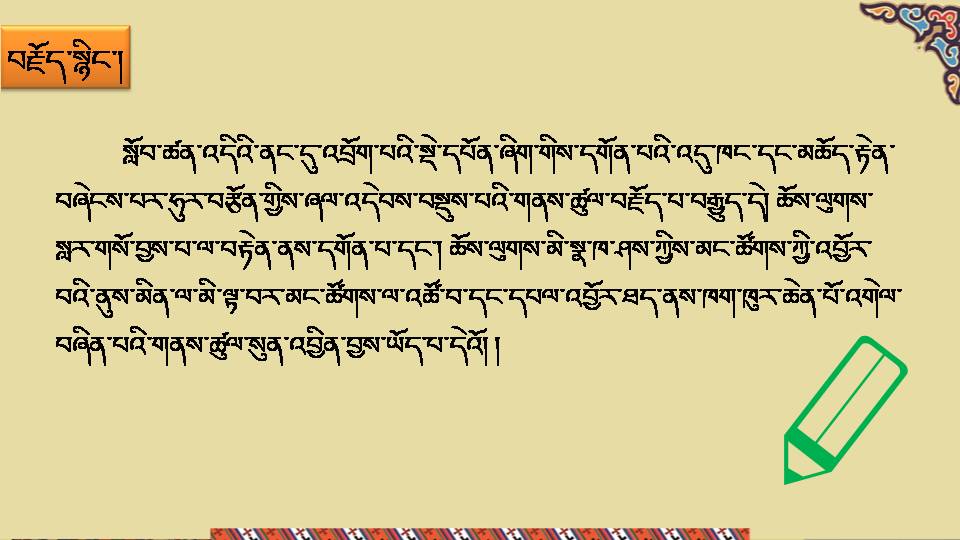 བརྗོད་སྙིང་།
སློབ་ཚན་འདིའི་ནང་དུ་འབྲོག་པའི་སྡེ་དཔོན་ཞིག་གིས་དགོན་པའི་འདུ་ཁང་དང་མཆོད་རྟེན་
བཞེངས་པར་ཧུར་བརྩོན་གྱིས་ཞལ་འདེབས་བསྡུས་པའི་གནས་ཚུལ་བརྗོད་པ་བརྒྱུད་དེ། ཆོས་ལུགས་
སླར་གསོ་བྱས་པ་ལ་བརྟེན་ནས་དགོན་པ་དང་། ཆོས་ལུགས་མི་སྣ་ཁ་ཤས་ཀྱིས་མང་ཚོགས་ཀྱི་འབྱོར་
བའི་ནུས་མིན་ལ་མི་ལྟ་བར་མང་ཚོགས་ལ་འཚོ་བ་དང་དཔལ་འབྱོར་ཐད་ནས་ཁག་ཁུར་ཆེན་པོ་འགེལ་
བཞིན་པའི་གནས་ཚུལ་སུན་འབྱིན་བྱས་ཡོད་པ་དེའོ། །